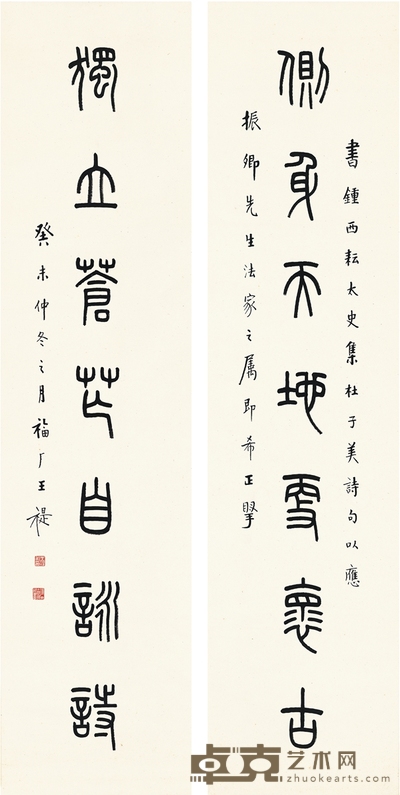 書鍾西耘太史集杜子美詩句以應
側身天地更懷古
振卿先生法家之属即希正
獨立蒼茫自詠詩
癸未仲冬之月福厂王禔
卓克艺术网
zhuokearts.com